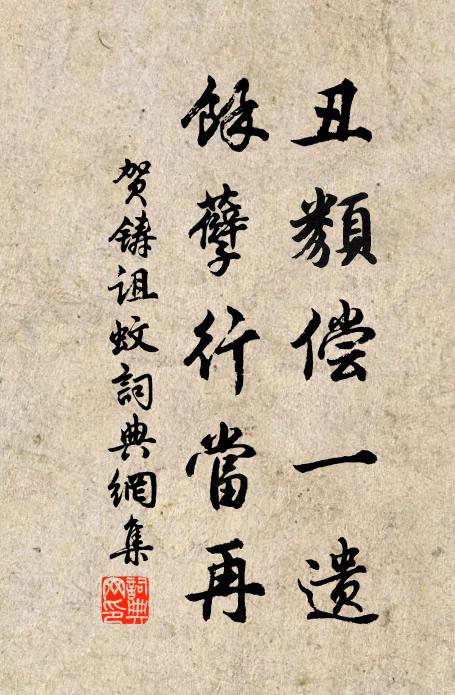 丑類偿一遗
餘孽行當再
贺鋳诅蚊詞典網集
詞典网印